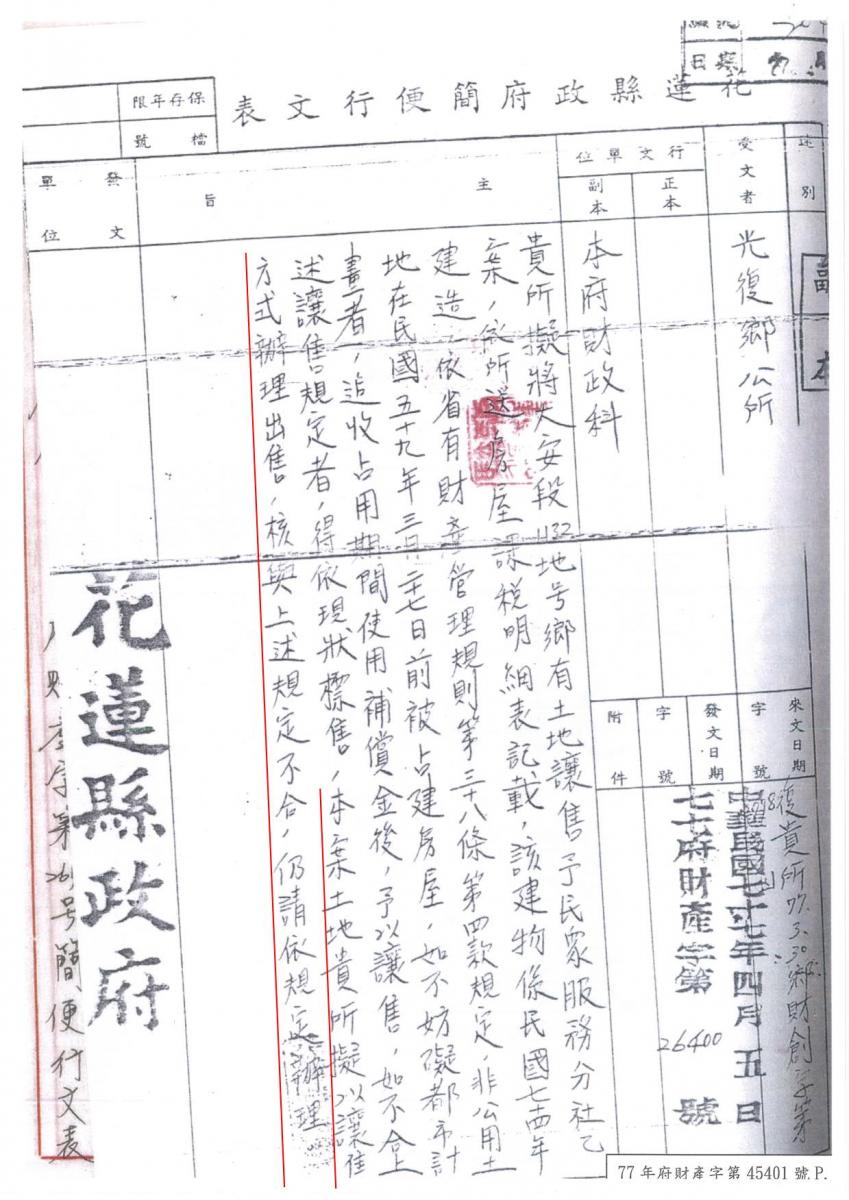 花蓮縣政府簡便行文表
保存年限
檔號
速別
副本
受文者
光復鄉公所
行文單位
正本
副本
本府財政科
來文日期
字號
復貴所77.3.30鄉財創字第
發文日期
字號
中華民國七十七年四月五日
七七府財產字第26400號
附件
主旨
貴所擬將大安段1132地号鄉有土地讓售予民眾服務分社乙
案，依所送房屋課稅明細表記載，該建物係民國七十四年
建造，依省有財產管理規則第三十八條第四款規定，非公用土
地在民國五十九年三月二十七日前被占建房屋，如不妨礙都市計
畫者，追收占用期間使用補償金後，予以讓售，如不合上
述讓售規定者，得依現狀標售，本案土地貴所擬以讓售
方式辦理出售，核與上述規定不合，仍請依規定辦理
發文單位
花蓮縣政府
財產字第 号簡便行文表
77年府財產字第45401號P.